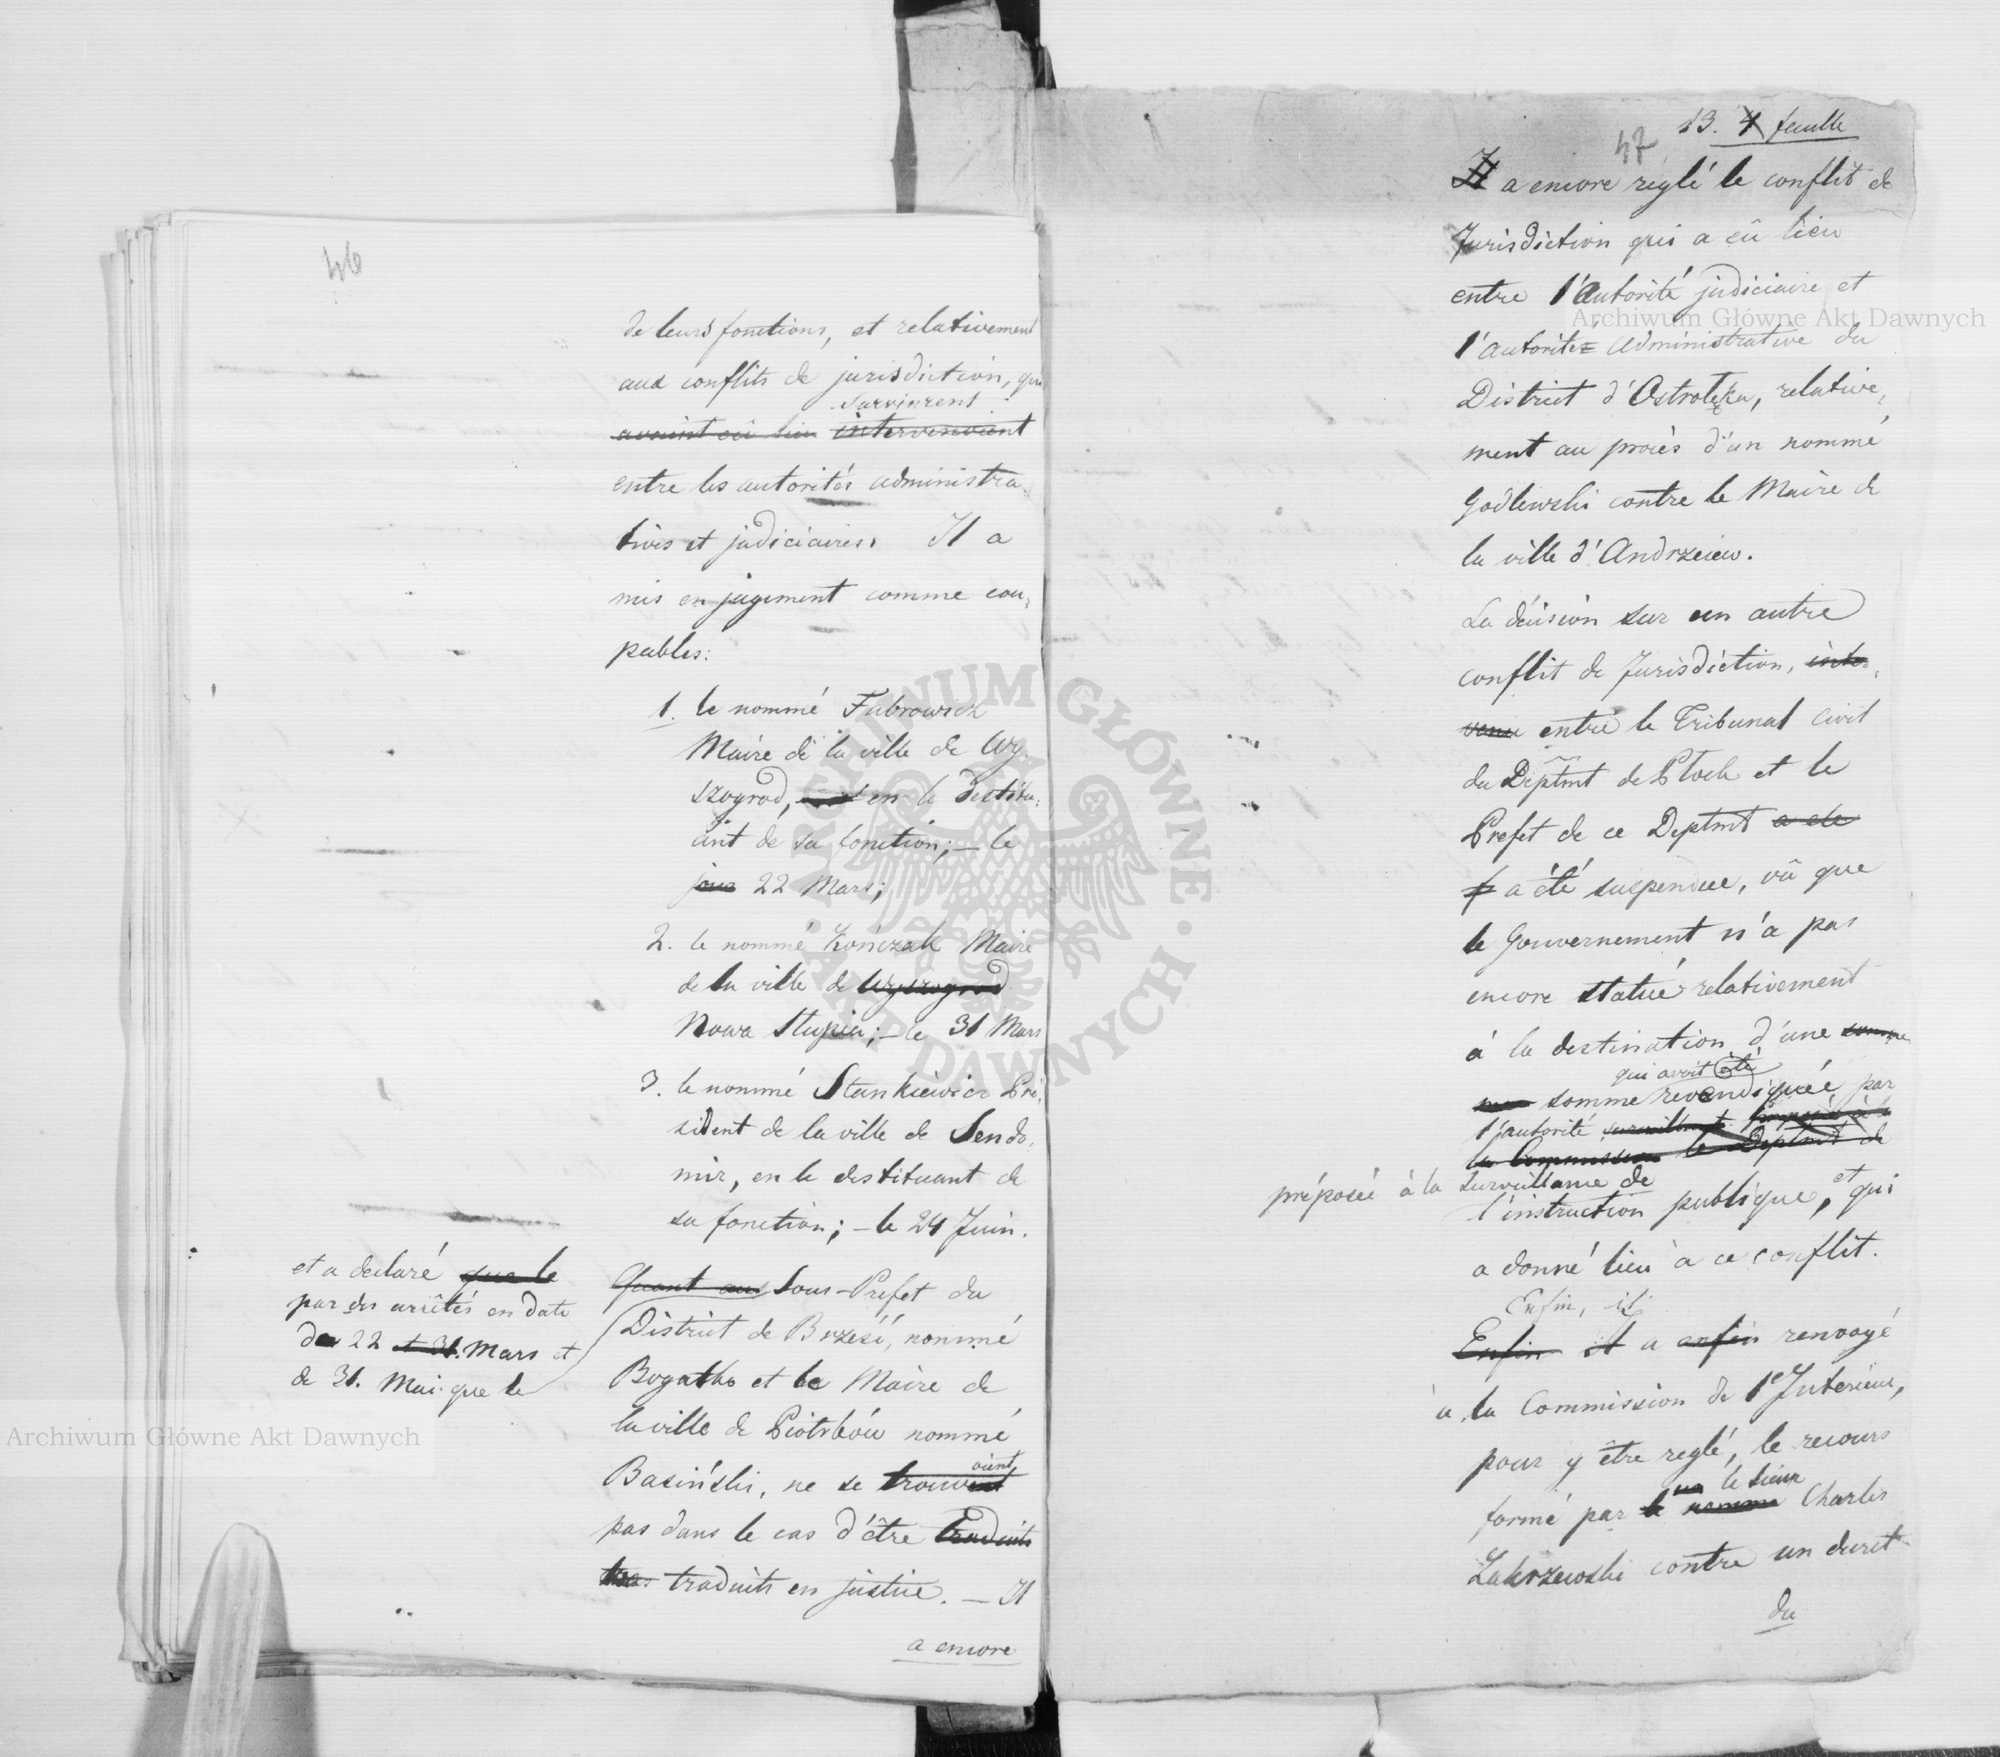 46
de leurs fonctions, et relativement
aux conflits de jurisdiction, qui
survinrent
avaient eu lieu intervenoient
entre les autorités administra,
tives et judiciaires. Il a
mis en jugement comme cou,
pables:
1. le nommé Fabrowicz
Maire de la ville de Wy,
szogrod, en le destitu,
ant de sa fonction; — le
jour 22 Mars;
2. le nommé Kończak Maire
de la ville de Wyszogrod
Nowa Słupia; — le 31 Mars
3. le nommé Stankiewicz Pré,
sident de la ville de Sendo,
mir, en le destituant de
sa fonction; — le 24 Juin.
et a declaré que le
par des arrêtés en date
de 22 et 31. Mars et
de 31. Mai que le
Quant au Sous-Prefet du
District de Brześć, nommé
Bogatko et le Maire de
la ville de Piotrków nommé
Basiński, ne se trouvent
oient
pas dans le cas d'être traduits
traduits en justice. — Il
a encore
13. 4 feuille
47
Il a encore réglé le conflit de
Jurisdiction qui a eû lieu
entre l'Autorité judiciaire et
l'autorité Administrative du
District d'Ostrołęka, relative,
ment au procès d'un nommé
Godlewski contre le Maire de
la ville d'Andrzeiew.
La décision sur un autre
conflit de Jurisdiction, inter,
venu entre le Tribunal Civil
du Deptmt de Płock et le
Prefet de ce Deptmt a ete
a été suspendue, vû que
le Gouvernement n'a pas
encore statué relativement
à la destination d'une somme
qui avoit été
somme revendiquée par
l'autorité surveillante préposée à
la Commission le Deptmt de
préposée à la surveillance de
l'instruction publique, et qui
a donné lieu à ce conflit.
Enfin, il
Enfin il a enfin renvoyé
à la Commission de l'Intérieur,
pour y être reglé, le recours
un le Sieur
formé par le nommé Charles
Zakrzewski contre un decret
du